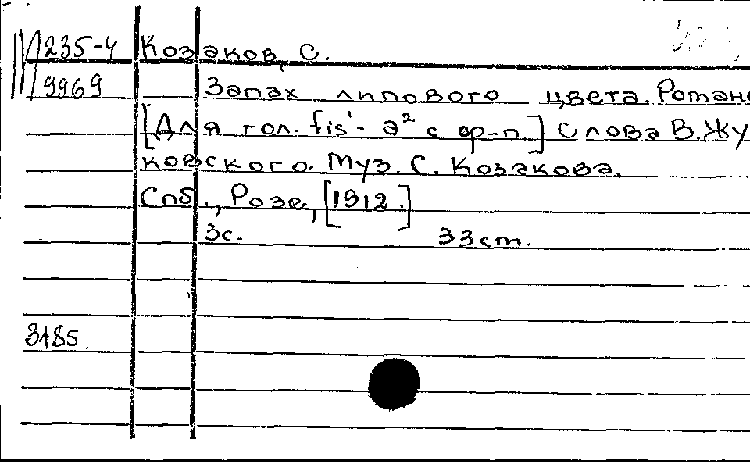 235-4 Козаков, С.
9969 Запах липового цвета. Романс
[Для гол. fis¹- a² с ф-п.] Слова В. Жу
ковского. Муз. С. Козакова.
Спб., Розе, [1912.]
3с. 33cm.
3185